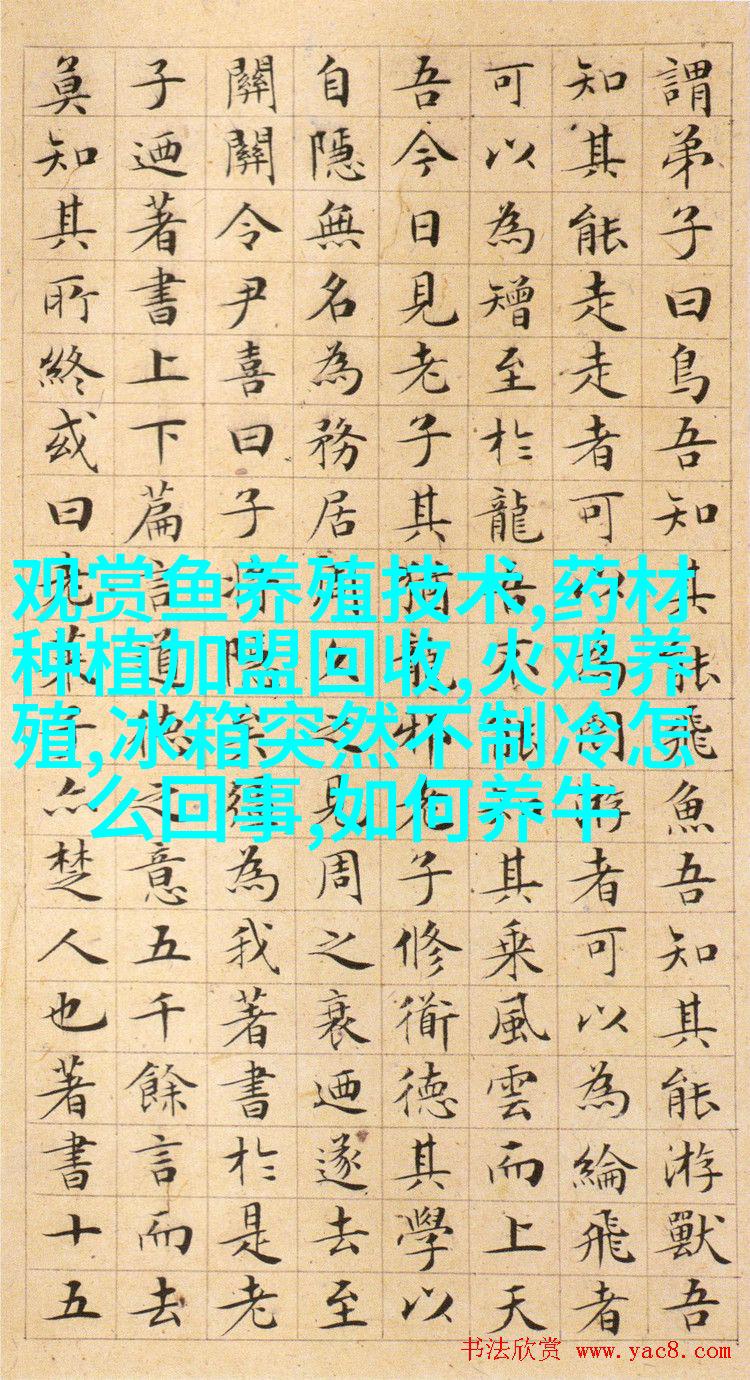 謂弟子曰鳥吾知其能飛魚吾知其能游獸吾
知其能走走者可以為罔游者可以為綸飛者
可以為矰至於龍吾不能知其乗風雲而上天
吾今日見老子其猶龍邪老子修衟德其學以
自隱無名為務居周久之見周之衰迺遂去至
關關令尹喜曰子将隱矣彊為我著書於是老
子迺著書上下篇言道德之意五千餘言而去
莫知其所終或曰老萊子亦楚人也著書十五
观赏鱼养殖技术,药材
种植加盟回收,火鸡养
殖,冰箱突然不制冷怎
么回事,如何养牛
书法欣赏 www.yac8.com